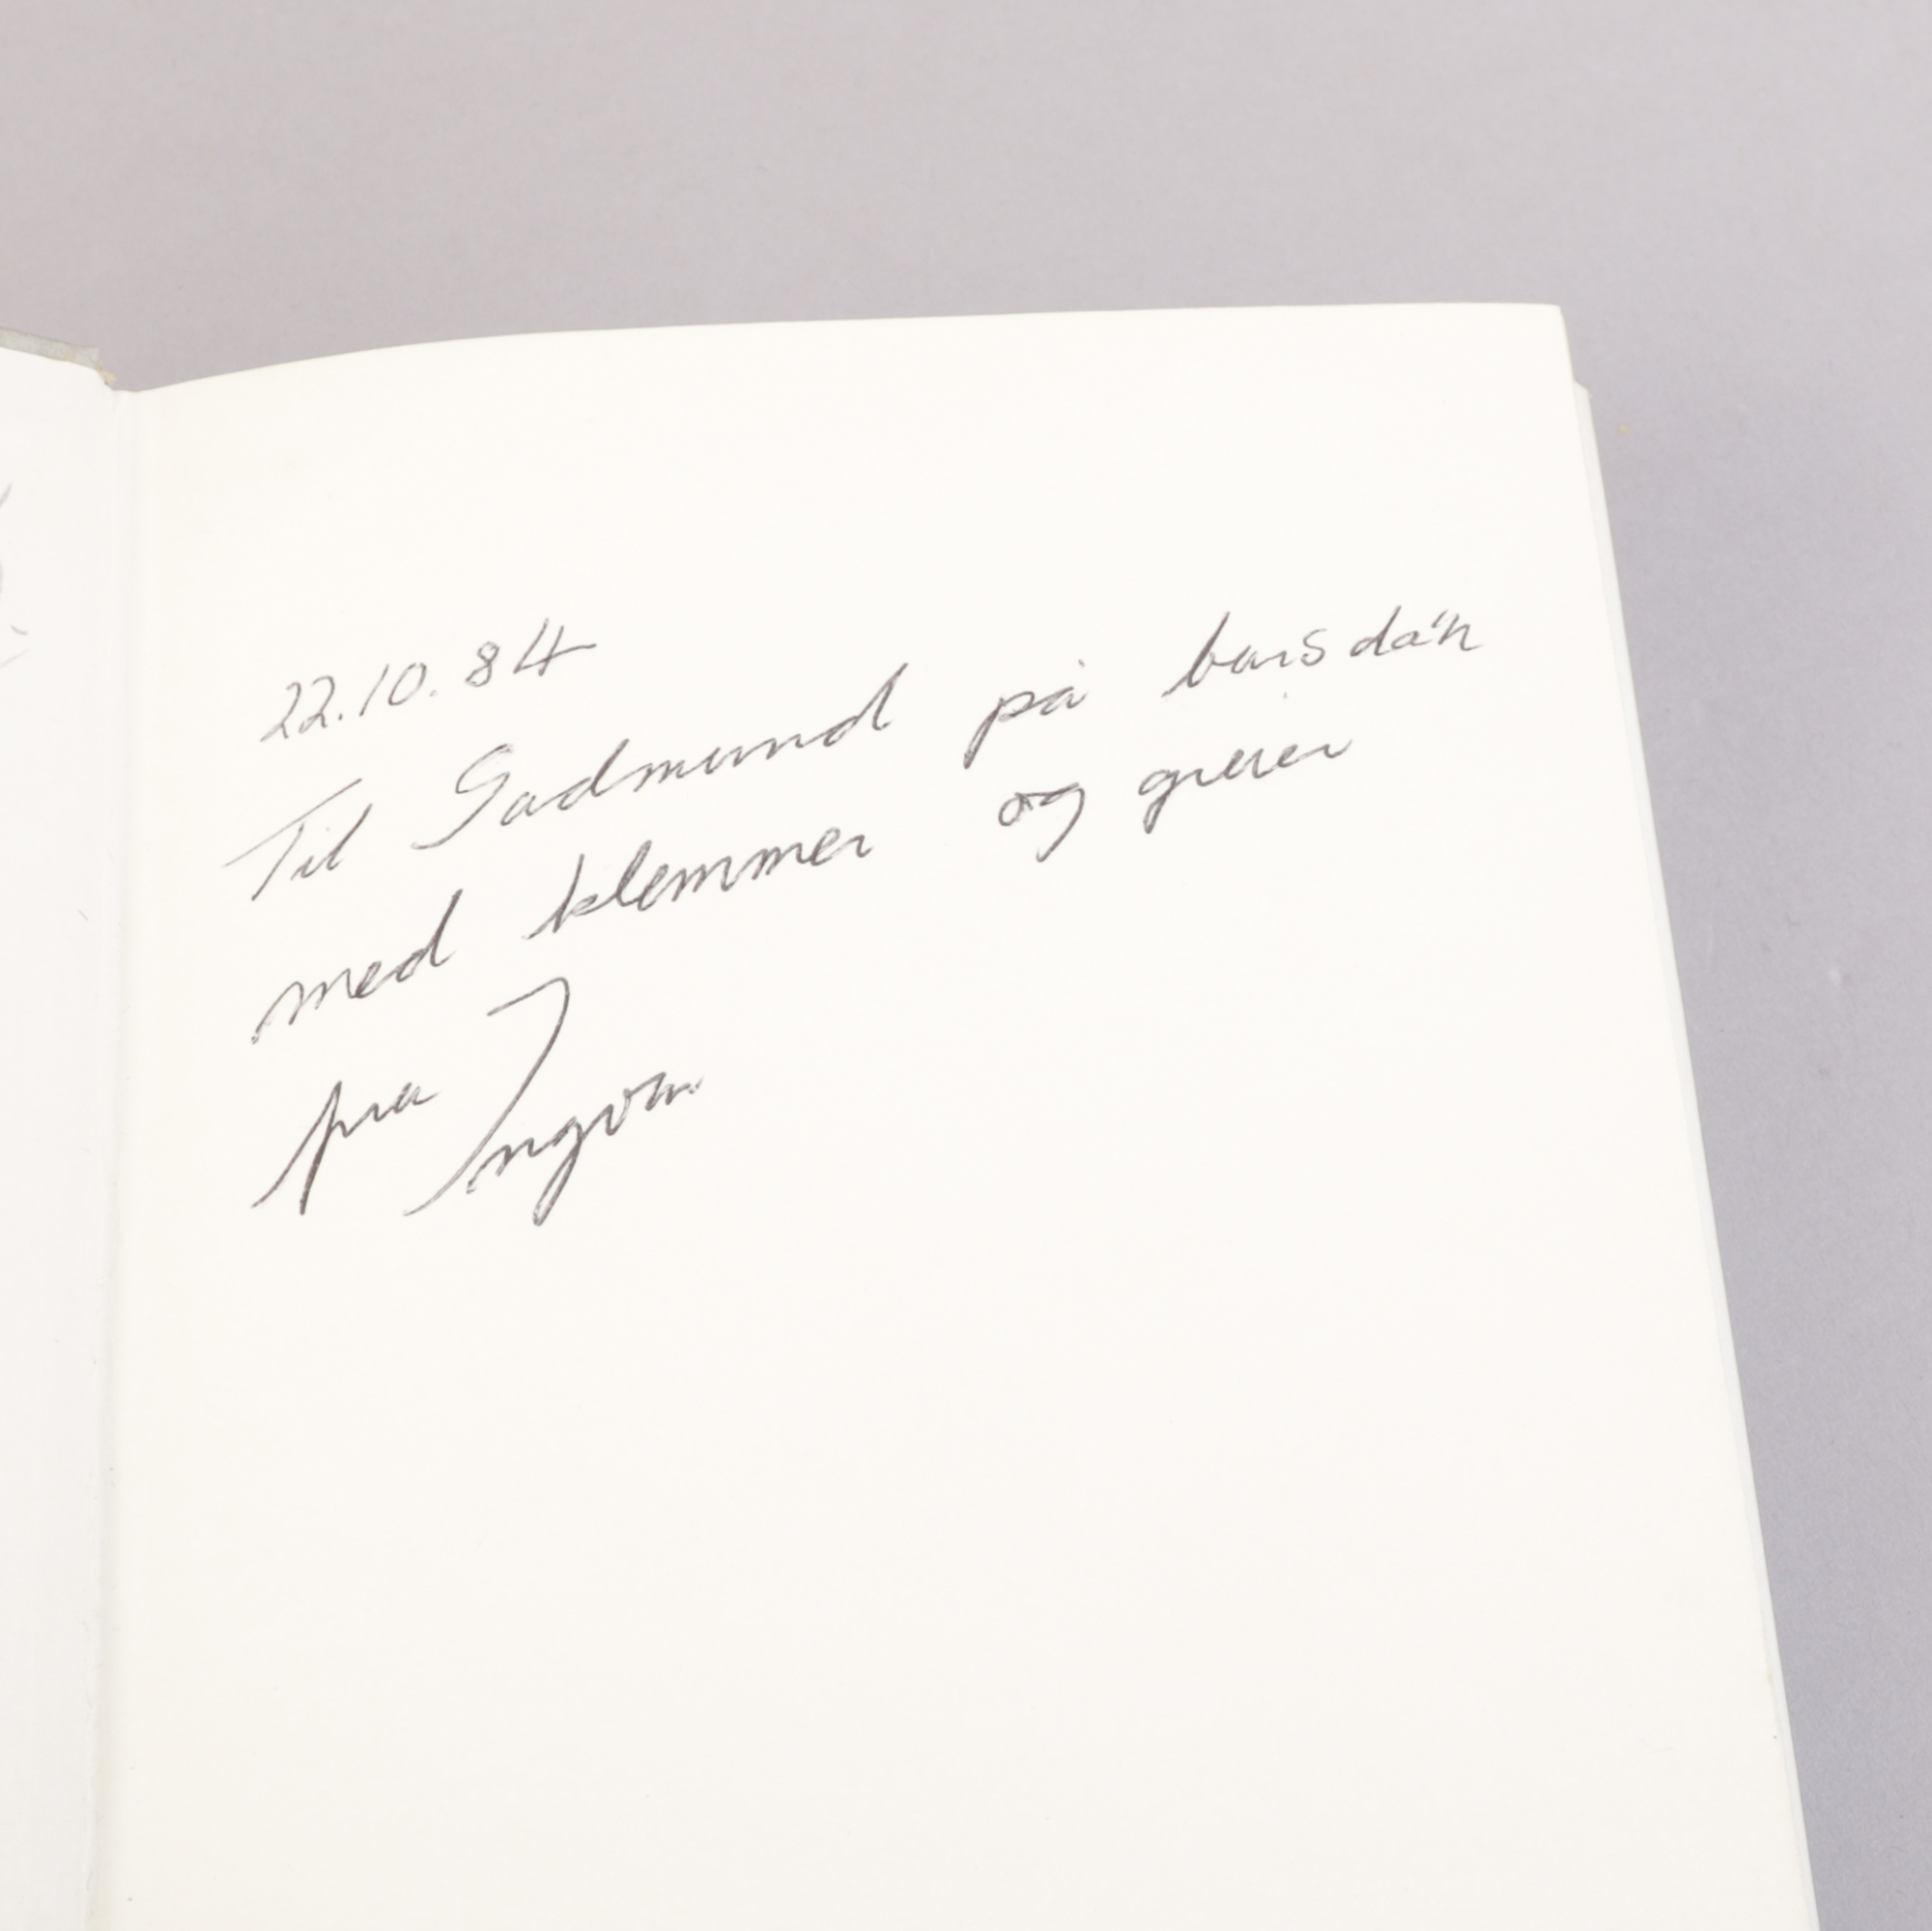 22.10.84
Til Gudmund på bursda'n
med klemmer og greier
fra Ingvar